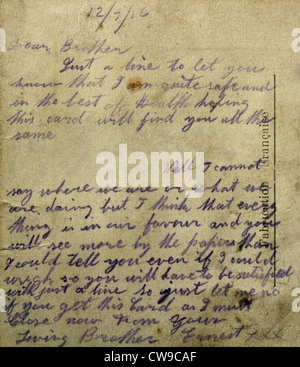 12/7/16
Dear Brother
Just a line to let you
know that I am quite safe and
in the best of Health hoping
this card will find you all the
same
Well I cannot
say where we are or what we
are doing but I think that every
thing is in our favour and you
will see more by the papers than
I could tell you even if I could
so you will have to be satisfied
with just a line so just let me no
if you get this Card as I must
Close now From Your
Loving Brother Ernest xxx
Fabrication Française
alamy
Image ID: CW9CAF
www.alamy.com